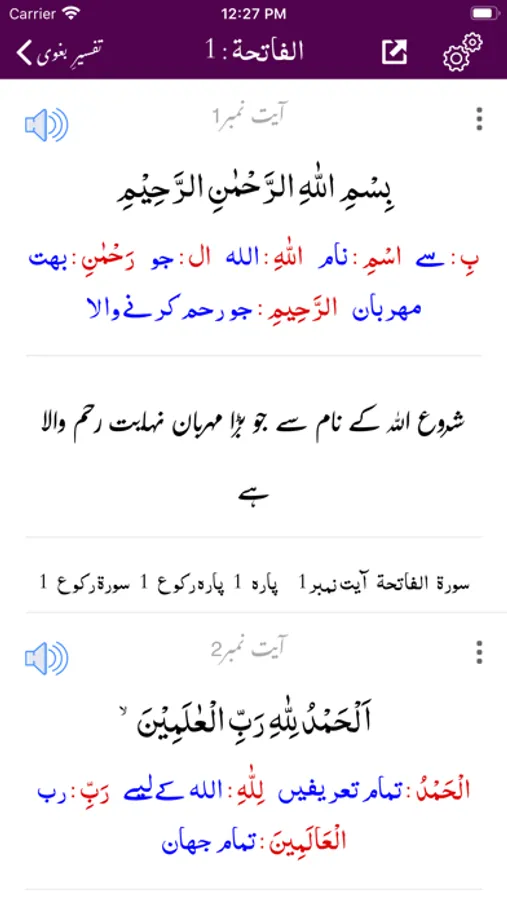 Carrier 12:27 PM
تفسیرِ بغوی الفاتحة : 1
آیت نمبر1
بِسْمِ اللّٰهِ الرَّحْمٰنِ الرَّحِیْمِ
بِ: سے اسْمِ: نام اللّٰهِ: الله ال: جو رَحْمٰنِ: بهت
مهربان الرَّحِيمِ: جو رحم کرنے والا
شروع اللہ کے نام سے جو بڑا مہربان نہایت رحم والا
ہے
سورة الفاتحة آیت نمبر1 پاره 1 پاره رکوع 1 سورة رکوع 1
آیت نمبر2
اَلْحَمْدُ لِلّٰهِ رَبِّ الْعٰلَمِیْنَ ۙ
الْحَمْدُ: تمام تعریفیں لِلّٰهِ: الله کے لیے رَبِّ: رب
الْعَالَمِينَ: تمام جهان